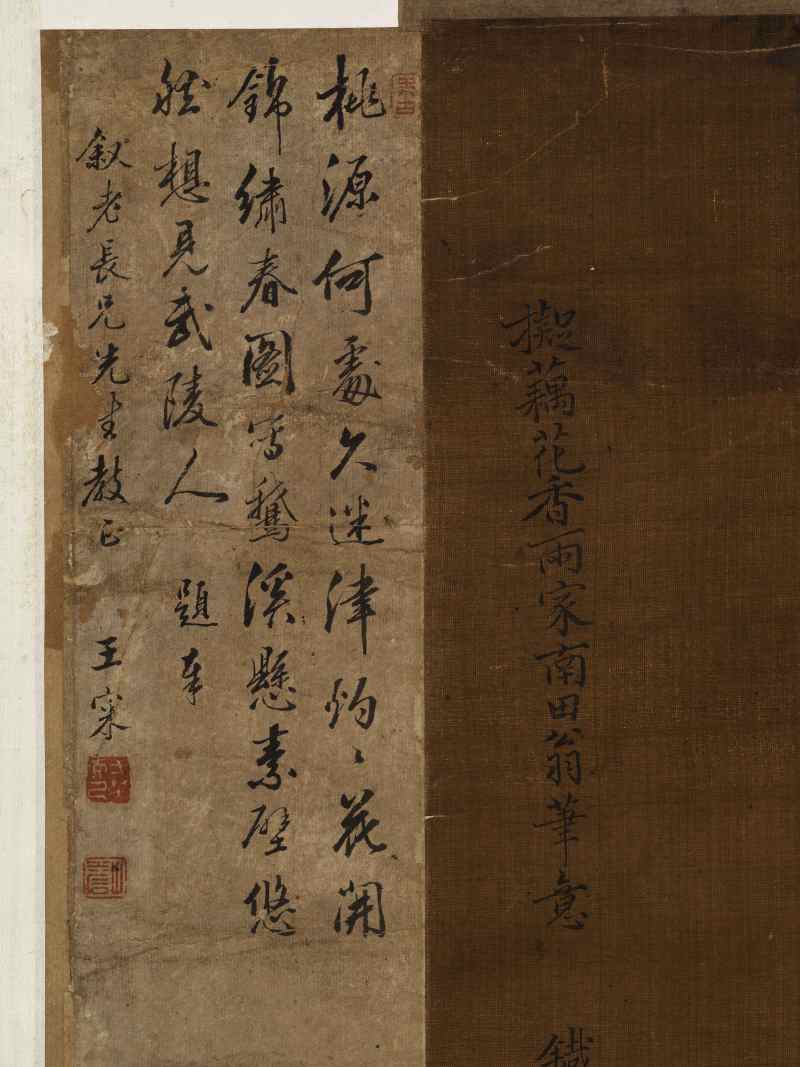 擬藕花香雨家南田翁筆意
鐵
桃源何處久迷津灼〻花開
錦繡春圖寫鵞溪懸素壁悠
然想見武陵人 題奉
叙老長兄先生教正 王寀